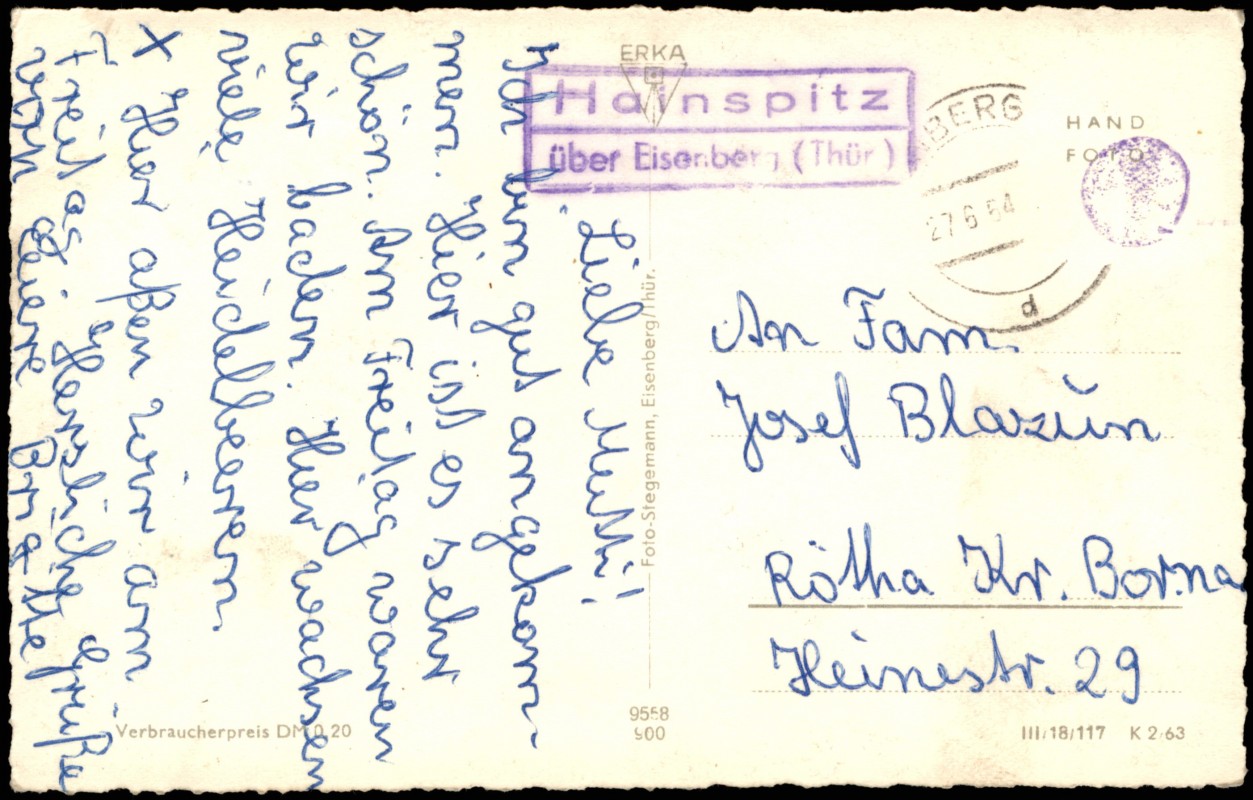 Liebe Mutti!
Ich bin gut angekom-
men. Hier ist es sehr
schön. Am Freitag waren
wir baden. Hier wachsen
viele Heidelbeeren.
X Hier aßen wir am
Freitag. Herzliche Grüße
von deiner Brigitte
ERKA
Hainspitz
über Eisenberg (Thür)
BERG
27.6.64
d
HAND
FOTO
An Fam.
Josef Blazūn
Rötha Kr. Borna
Heinestr. 29
Foto-Stegemann, Eisenberg/Thür.
Verbraucherpreis DM 0,20
9558
900
III/18/117 K 2/63